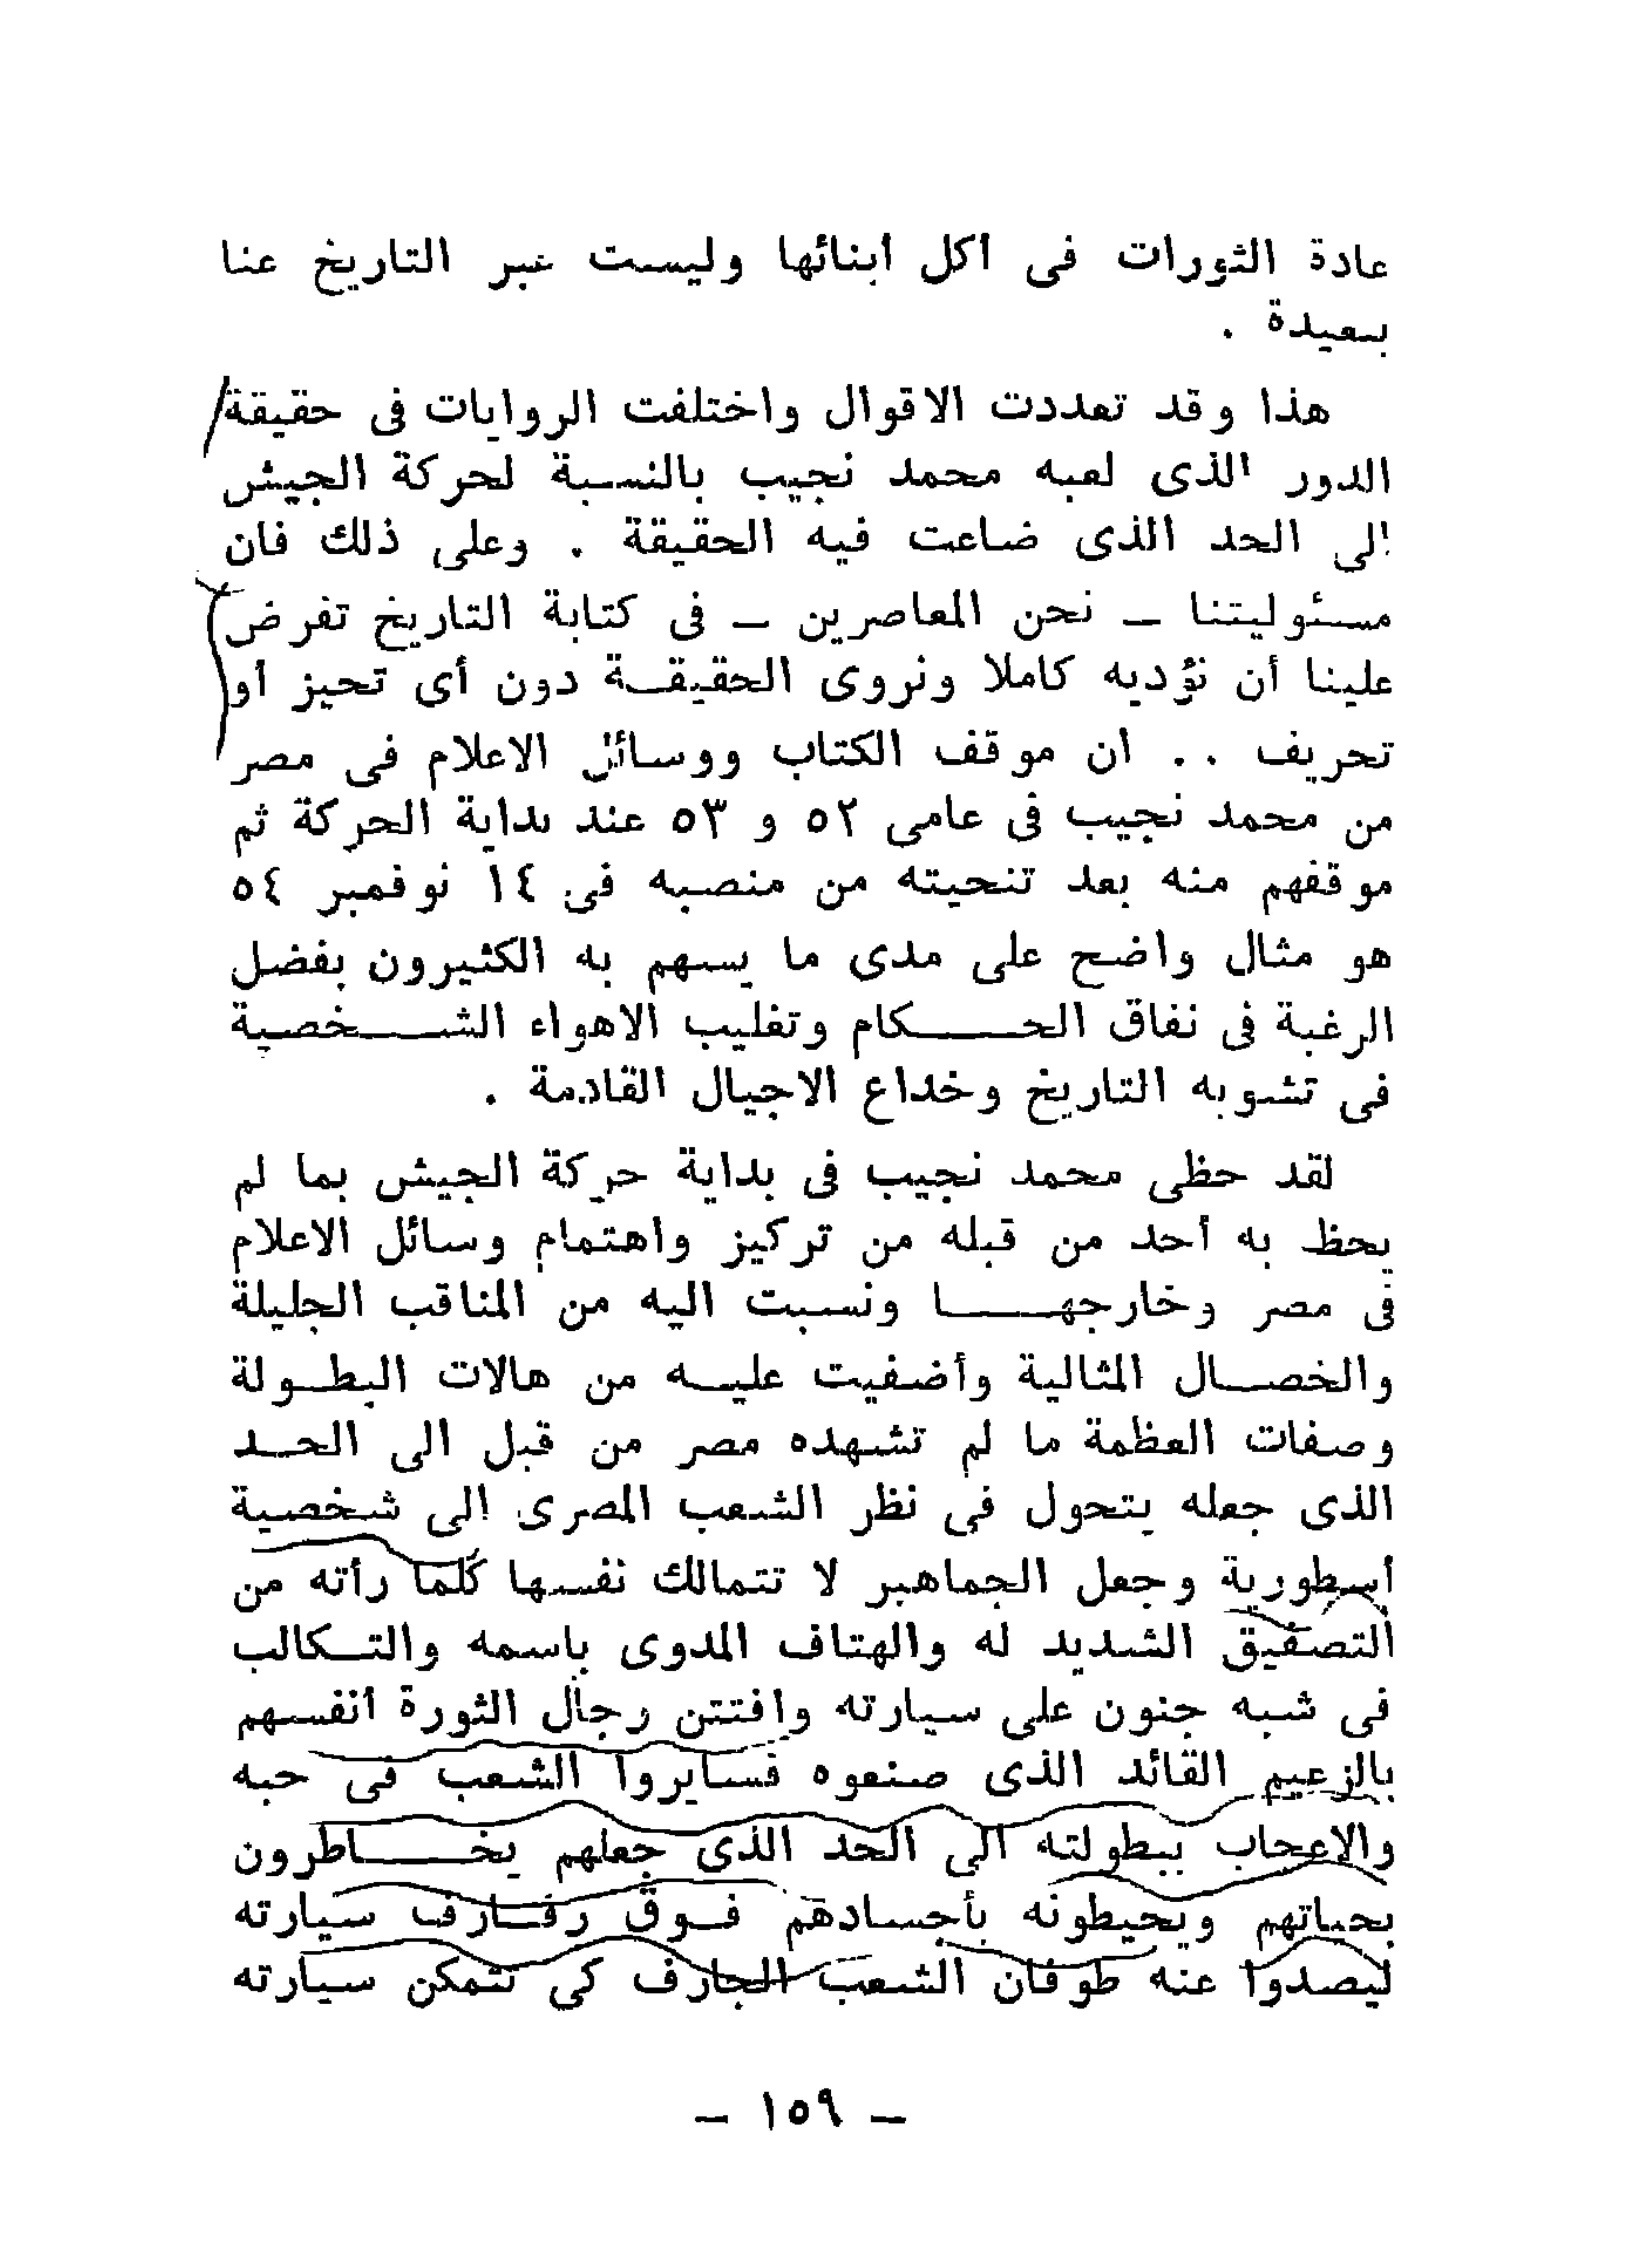 عادة الثورات فى أكل أبنائها وليست عبر التاريخ عنا
ببعيدة .
هذا وقد تعددت الاقوال واختلفت الروايات فى حقيقة
الدور الذى لعبه محمد نجيب بالنسبة لحركة الجيش
الى الحد الذى ضاعت فيه الحقيقة . وعلى ذلك فان
مسئوليتنا – نحن المعاصرين – فى كتابة التاريخ تفرض
علينا أن نؤديه كاملا ونروى الحقيقة دون أى تحيز أو
تحريف . . ان موقف الكتاب ووسائل الاعلام فى مصر
من محمد نجيب فى عامى ٥٢ و ٥٣ عند بداية الحركة ثم
موقفهم منه بعد تنحيته من منصبه فى ١٤ نوفمبر ٥٤
هو مثال واضح على مدى ما يسهم به الكثيرون بفضل
الرغبة فى نفاق الحكام وتغليب الاهواء الشخصية
فى تشويه التاريخ وخداع الاجيال القادمة .
لقد حظى محمد نجيب فى بداية حركة الجيش بما لم
يحظ به أحد من قبله من تركيز واهتمام وسائل الاعلام
فى مصر وخارجها ونسبت اليه من المناقب الجليلة
والخصال المثالية وأضفيت عليه من هالات البطولة
وصفات العظمة ما لم تشهده مصر من قبل الى الحد
الذى جعله يتحول فى نظر الشعب المصرى الى شخصية
أسطورية وجعل الجماهير لا تتمالك نفسها كلما رأته من
التصفيق الشديد له والهتاف المدوى باسمه والتكالب
فى شبه جنون على سيارته وافتتن رجال الثورة أنفسهم
بالزعيم القائد الذى صنعوه فسايروا الشعب فى حبه
والاعجاب ببطولته الى الحد الذى جعلهم يخاطرون
بحياتهم ويحيطونه بأجسادهم فوق رفارف سيارته
ليصدوا عنه طوفان الشعب الجارف كى تتمكن سيارته
– ١٥٩ –